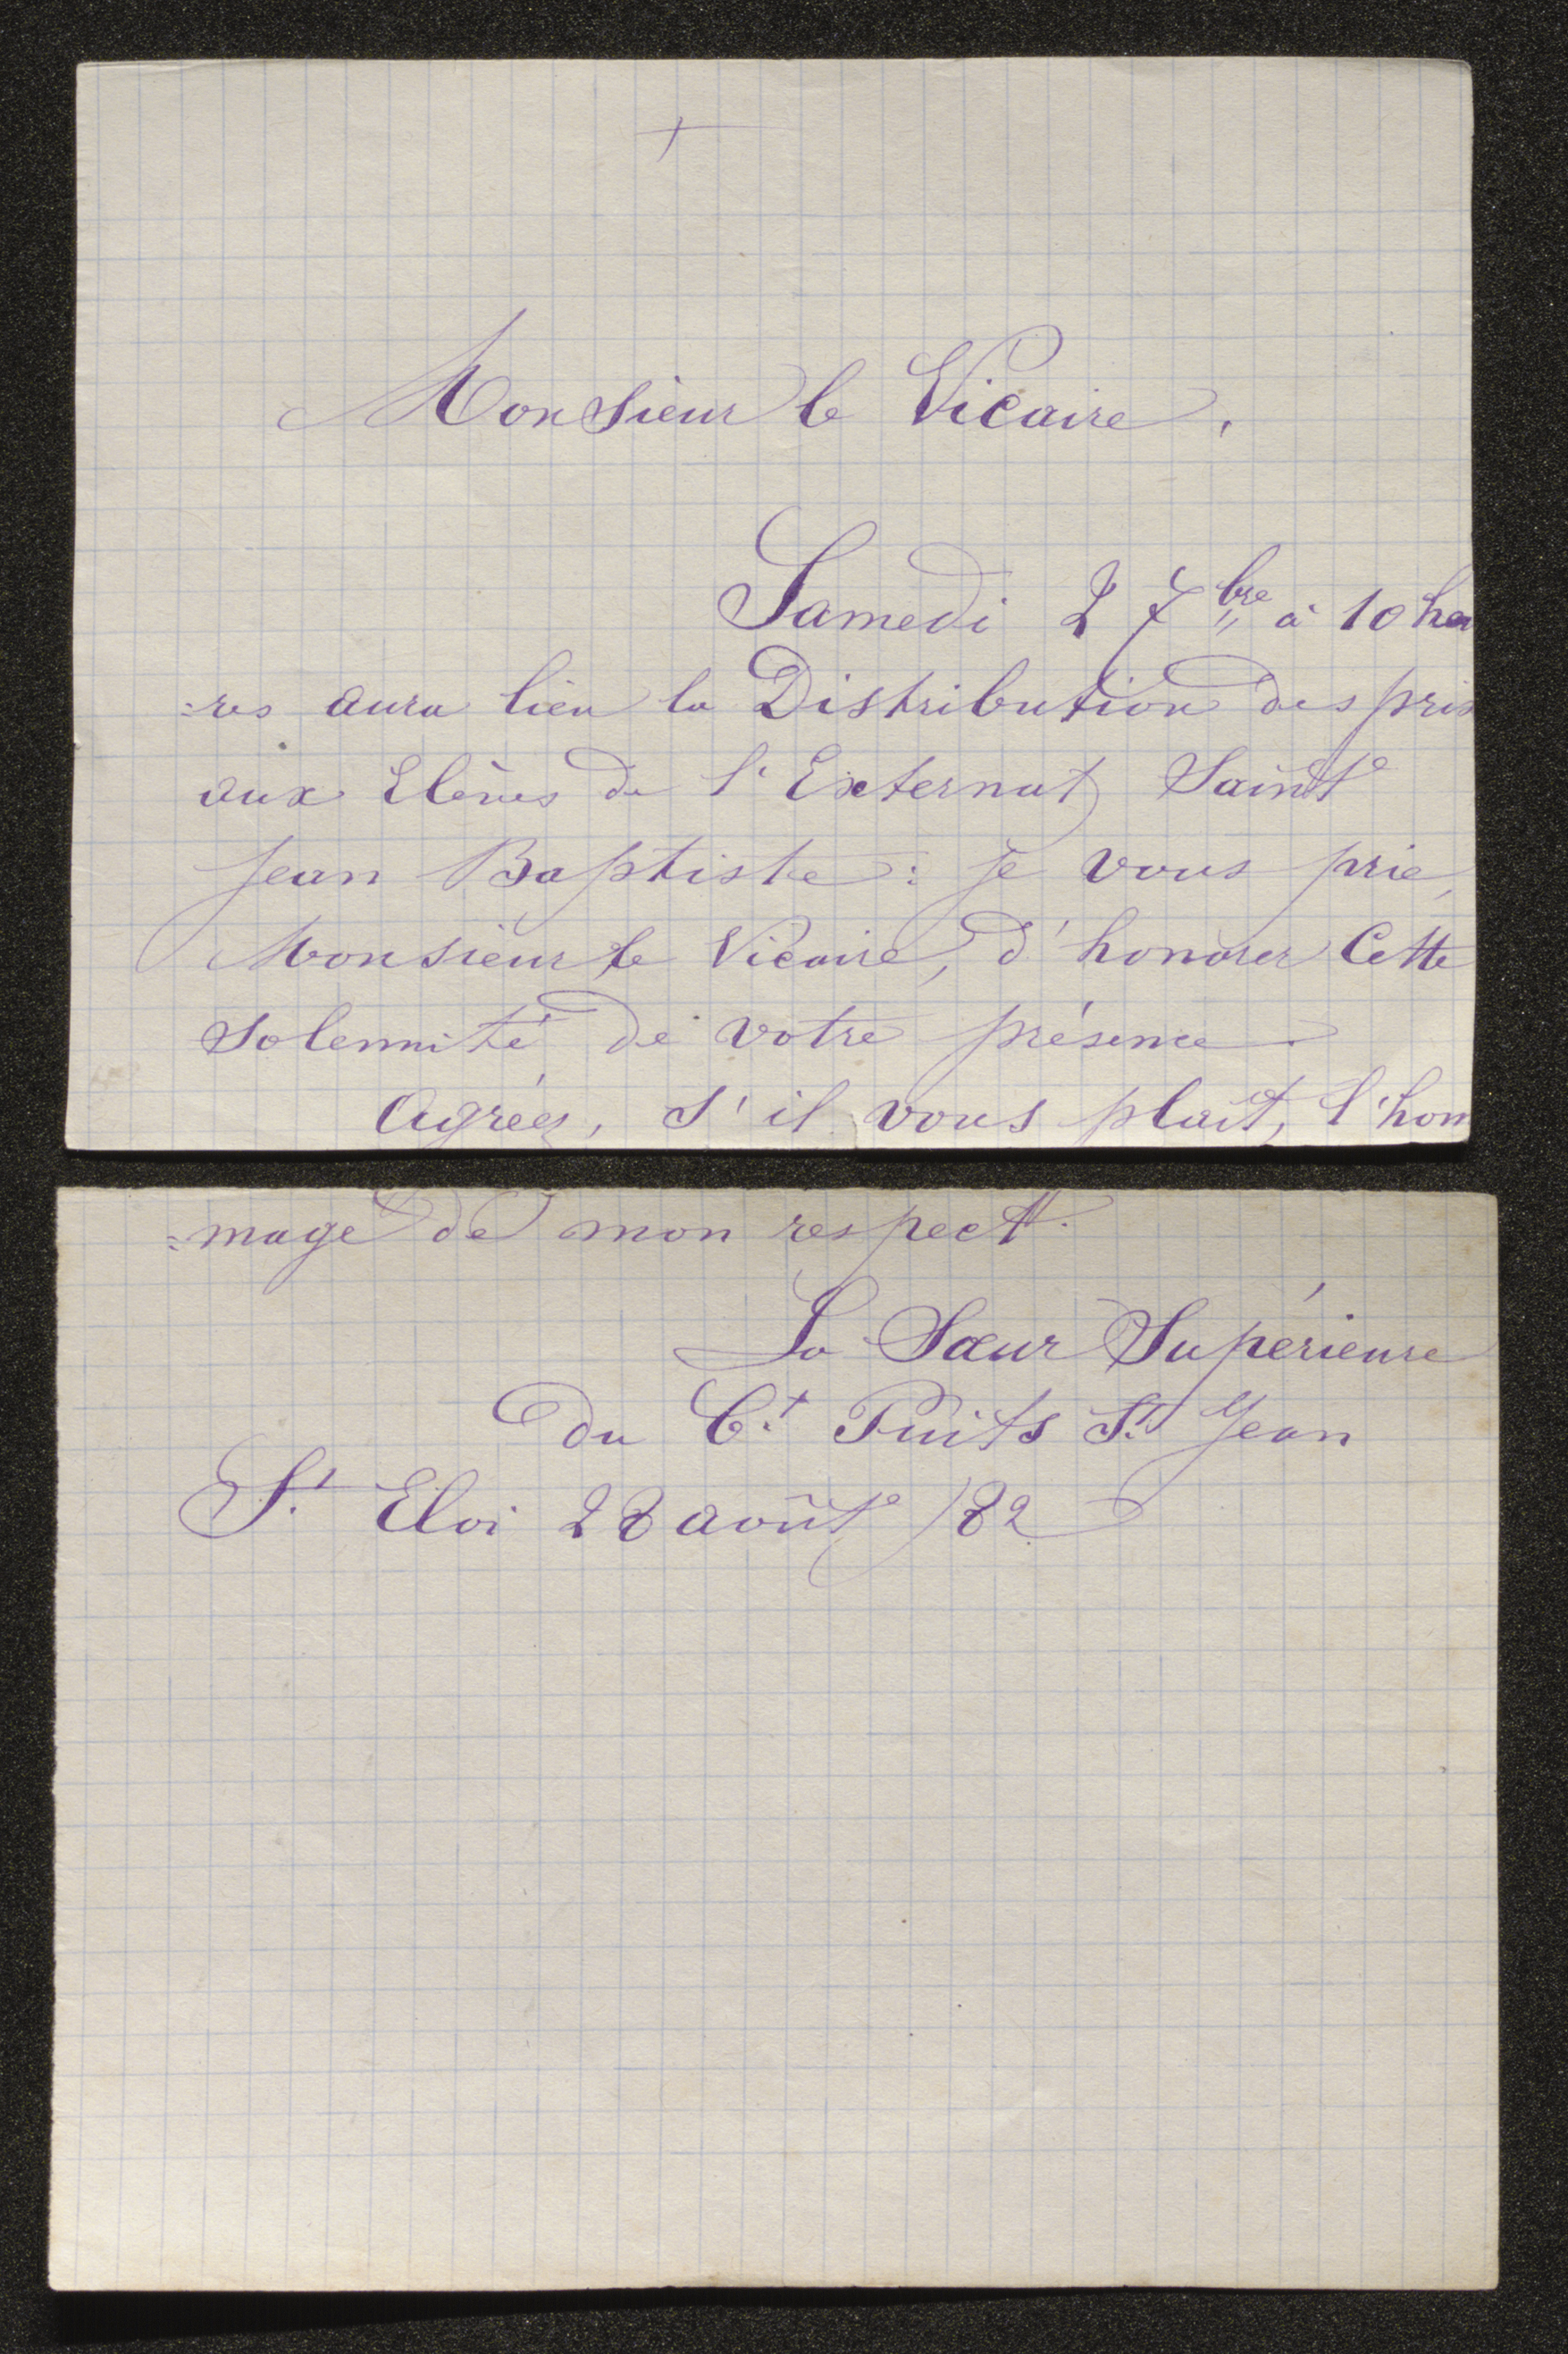 +
Monsieur le Vicaire,
Samedi 2 7bre à 10 heu
=res aura lieu la Distribution des prix
aux Elèves de l'Externat Saint
Jean Baptiste : je vous prie,
Monsieur le Vicaire, d'honorer Cette
Solennité de votre présence.
Agréez, s'il vous plaît, l'hom
=mage de mon respect.
La Sœur Supérieure
du Ct. Puits St. Jean
St. Eloi 28 août /82